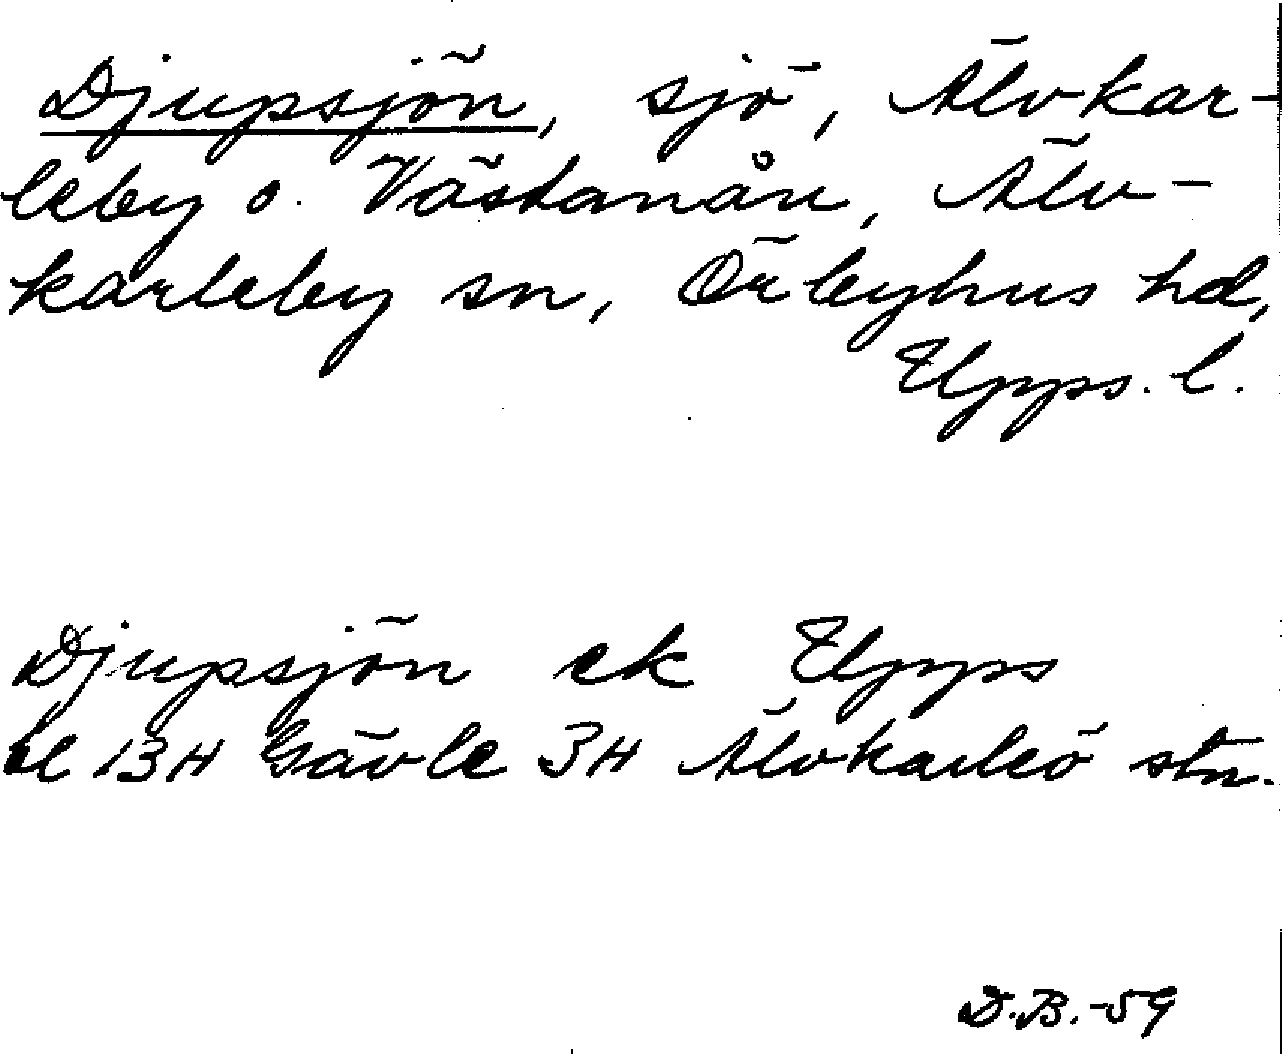 Djupsjön, sjö, Älvkar-
leby o. Västanån, Älv-
karleby sn, Örbyhus hd,
Upps. l.
Djupsjön ek Upps
bl 13H Gävle 3H Älvkarleö stn.
D.B.-59